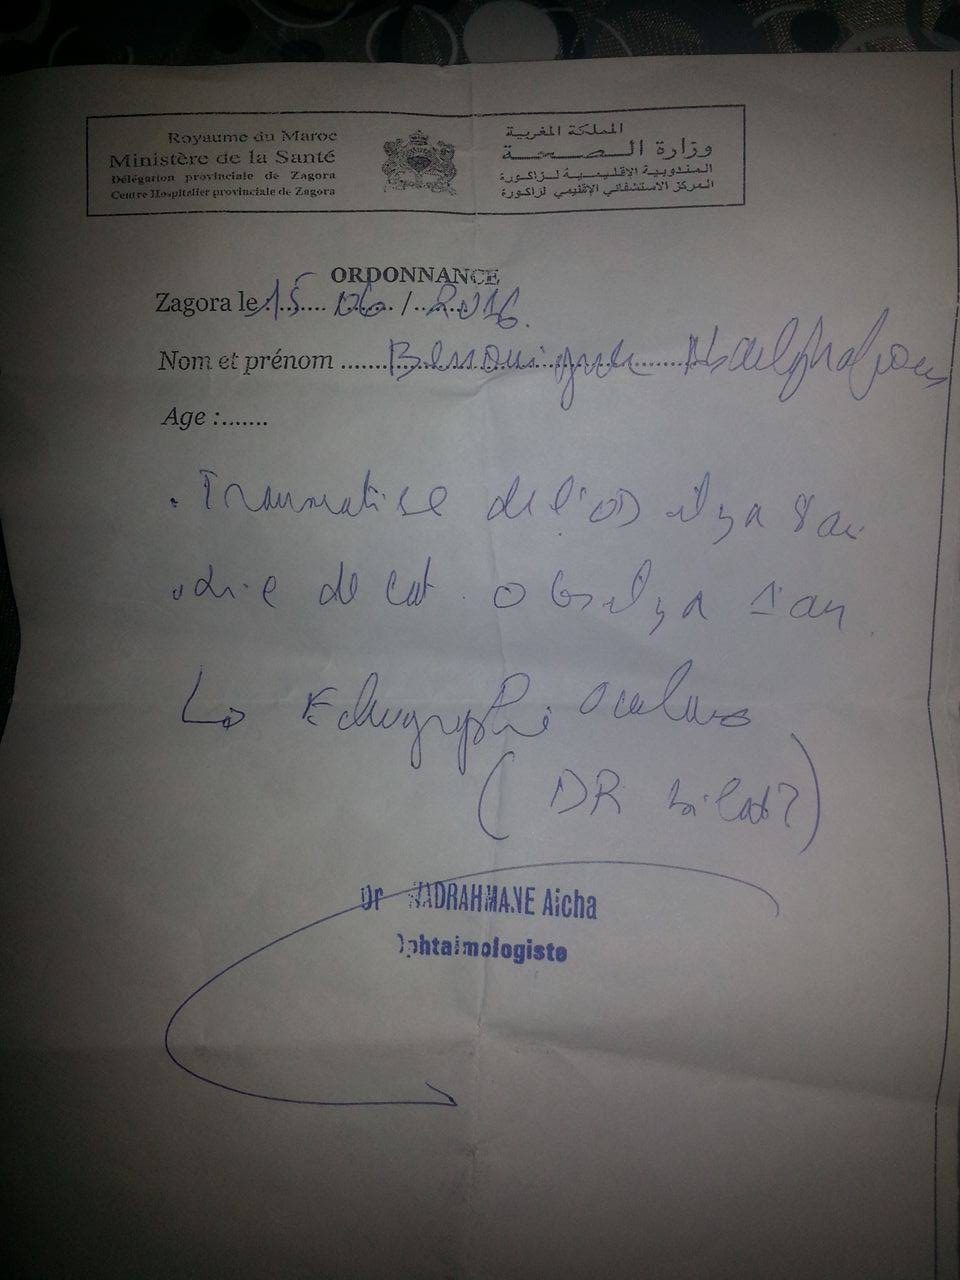 Royaume du Maroc
Ministère de la Santé
Délégation provinciale de Zagora
Centre Hospitalier provinciale de Zagora
المملكة المغربية
وزارة الصحة
المندوبية الإقليمية لزاكورة
المركز الاستشفائي الإقليمي لزاكورة
ORDONNANCE
Zagora le : 15 06 / 2016.
Nom et prénom
Age :.......
. Traumatise de l'OD il y a 8 an
de cat. il y a 1 an
Echographie oculaire
( DR bilat? )
Dr ADRAHMANE Aicha
Ophtalmologiste